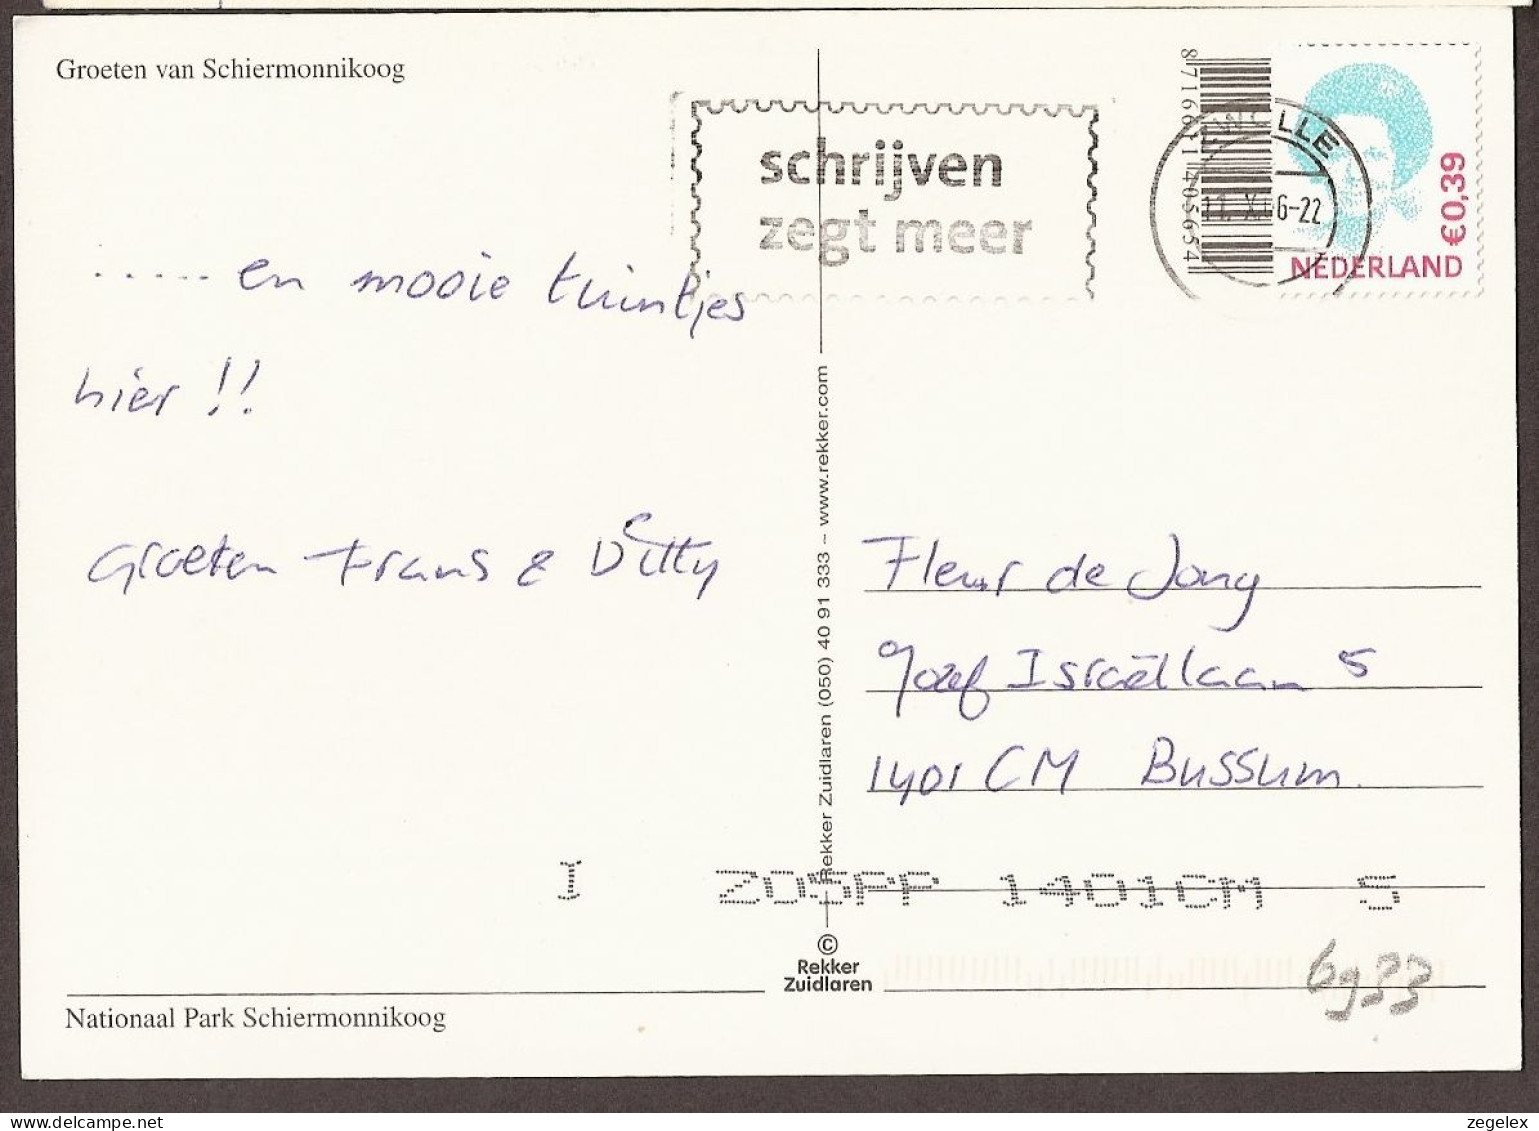 Groeten van Schiermonnikoog
schrijven
zegt meer
8716811405654
ZWOLLE
6-22
€0,39
NEDERLAND
..... en mooie tuintjes
hier !!
Groeten Frans & Ditty
Fleur de Jong
Jozef Israëllaan 5
1401 CM Bussum.
Rekker Zuidlaren (050) 40 91 333 ~ www.rekker.com
I ZOSPP 1401CM 5
©
Rekker
Zuidlaren
6933
Nationaal Park Schiermonnikoog
www.delcampe.net
zegelex